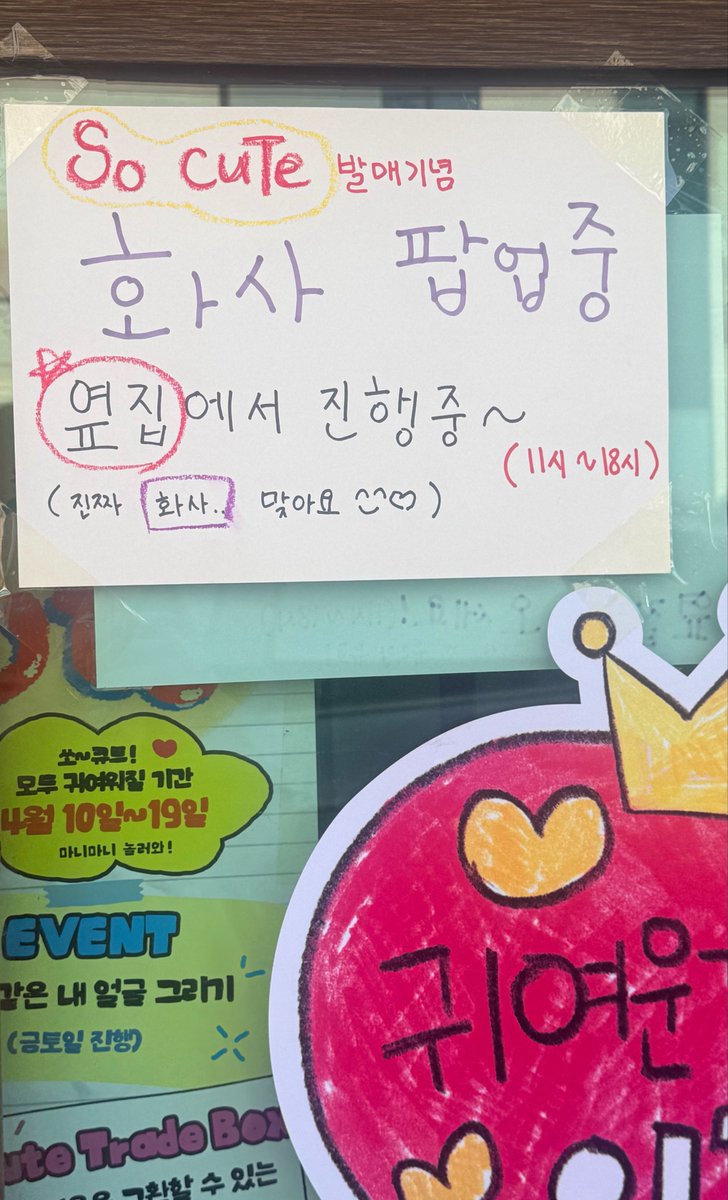 So CuTe 발매기념
화사 팝업중
옆집에서 진행중~
(11시~18시)
(진짜 화사.. 맞아요 ^^♡)
쏘~큐트!
모두 귀여워질 기간
4월 10일~19일
마니마니 놀러와!
EVENT
같은 내 얼굴 그리기
(금토일 진행)
ute Trade Box
교환할 수 있는
귀여운